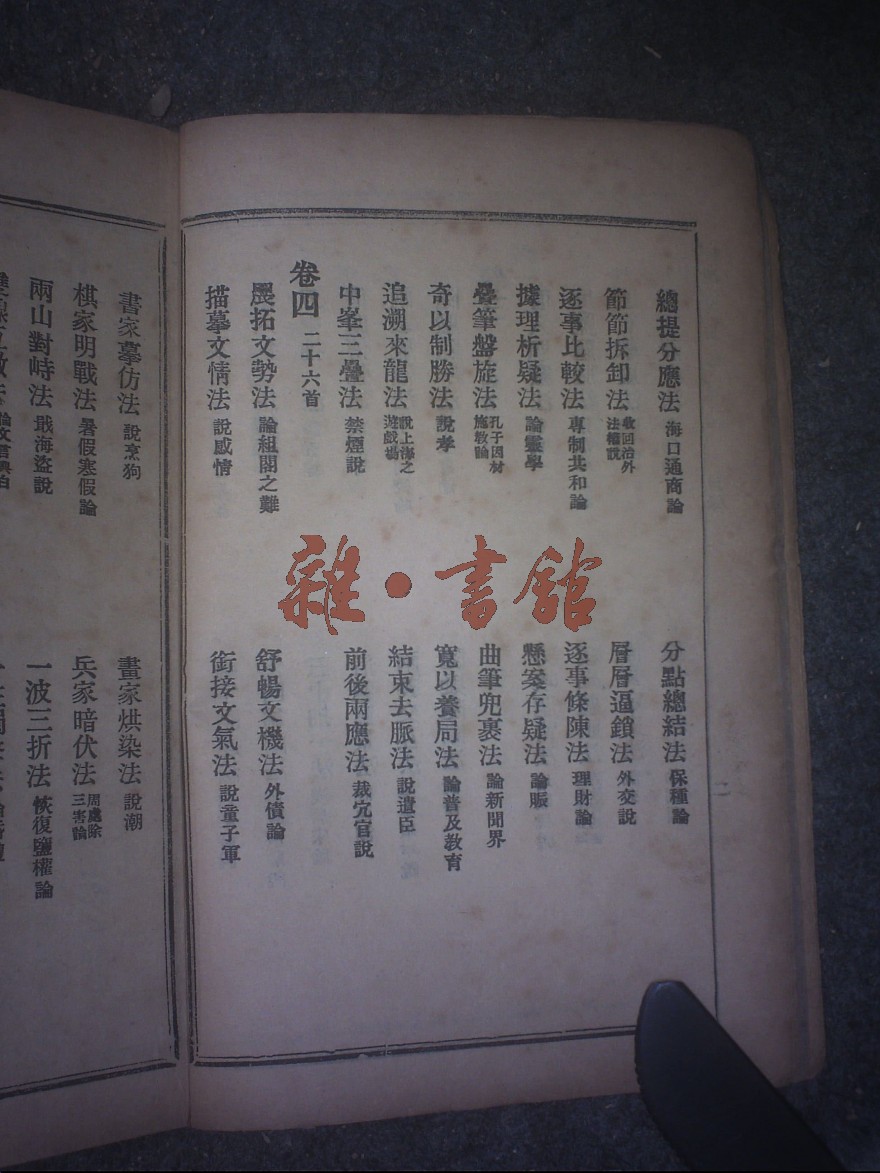 總提分應法 海口通商論
分點總結法 保種論
節節拆卸法 收回治外法權說
層層逼鎖法 外交說
逐事比較法 專制共和論
逐事條陳法 理財論
據理析疑法 論靈學
懸案存疑法 論賑
疊筆盤旋法 孔子因材施教論
曲筆兜裹法 論新聞界
奇以制勝法 說孝
寬以養局法 論普及教育
追溯來龍法 說上海之遊戲場
結束去脈法 說遺臣
中峯三疊法 禁煙說
前後兩應法 裁冗官說
卷四 二十六首
展拓文勢法 論組閣之難
舒暢文機法 外債論
描摹文情法 說感情
銜接文氣法 說童子軍
二
書家摹仿法 說烹狗
畫家烘染法 說潮
棋家明戰法 暑假寒假論
兵家暗伏法 周處除三害論
兩山對峙法 戢海盜說
一波三折法 恢復鹽權論
雜·書館